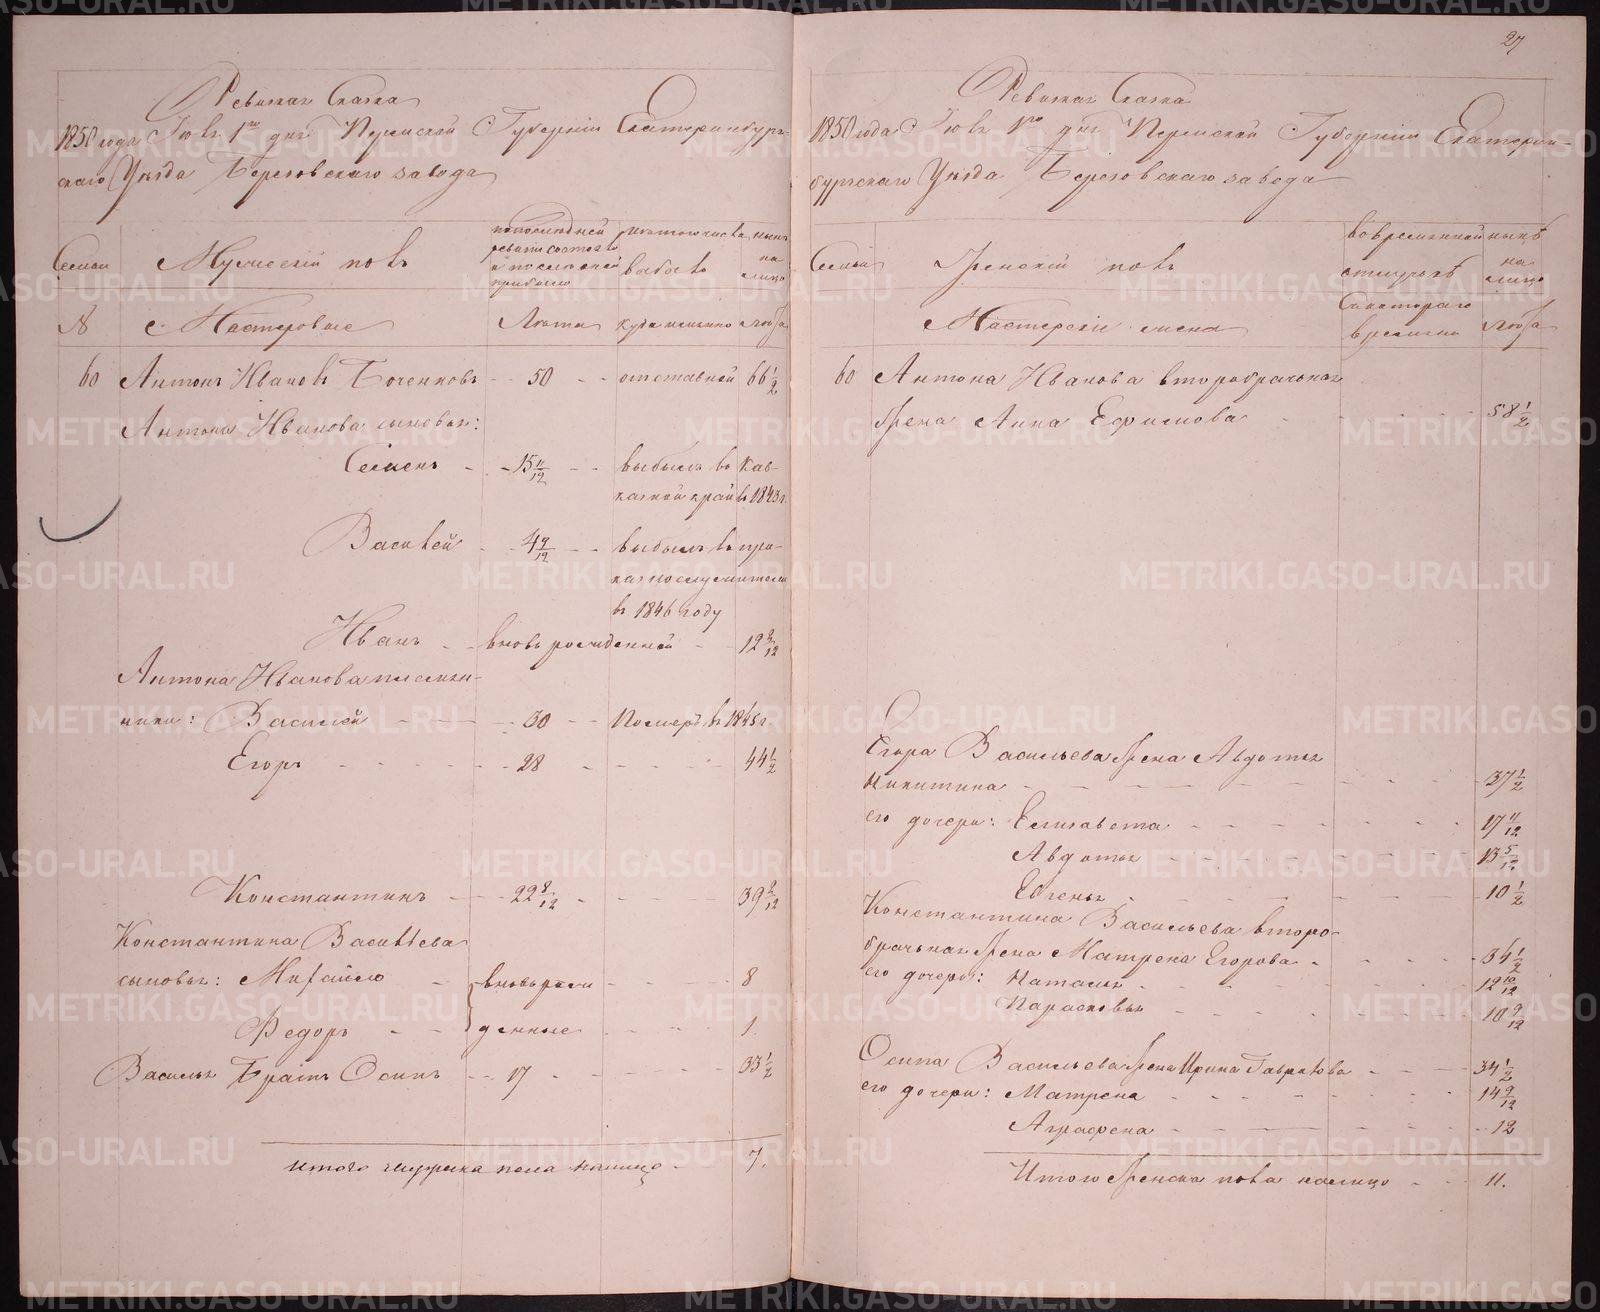 Ревизская Сказка
1850 года Июля 1го дня Пермской Губернии Екатеринбург-
скаго Уѣзда Березовскаго завода
Семьи
Мужескій полъ
по последней
ревизіи состояло
и после оной
прибыло
изъ того числа
выбыло
нынѣ
на
лицо
№
Мастеровые
Лѣта
куда именно
лѣта
60 Антонъ Ивановъ Боченковъ 50 отставной 66 1/2
Антона Иванова сыновья:
Семенъ 15 11/12 выбылъ во Кав-
казкой край въ 1843 г.
Василей 4 9/12 выбылъ въ при-
казнослужители
въ 1846 году
Иванъ вновь рожденной 12 2/12
Антона Иванова племян-
ники: Василей 30 Померъ въ 1845 г.
Егоръ 28 44 1/2
Константинъ 22 8/12 39 2/12
Константина Васильева
сыновья: Михайло вновь рож- 8
Федоръ денные 1
Василья братъ Осипъ 17 33 1/2
Итого мужеска пола налицо 7.
27
Ревизская Сказка
1850 года Июля 1го дня Пермской Губернии Екатерин-
бургскаго Уѣзда Березовскаго завода
Семьи
Женскій полъ
во временной
отлучкѣ
нынѣ
на
лицо
Мастерскіе жена
с котораго
времени
лѣта
60 Антона Иванова второбрачная
жена Анна Ефимова 58 1/2
Егора Васильева жена Авдотья
Никитина 37 1/2
его дочери: Елизавета 17 11/12
Авдотья 13 5/12
Евгенья 10 1/2
Константина Васильева второ-
брачная жена Матрена Егорова 36 1/2
его дочери: Наталья 12 10/12
Парасковья 10 9/12
Осипа Васильева жена Ирина Гаврилова 34 1/2
его дочери: Матрена 14 9/12
Аграфена 12
Итого Женска пола налицо 11.
METRIKI.GASO-URAL.RU